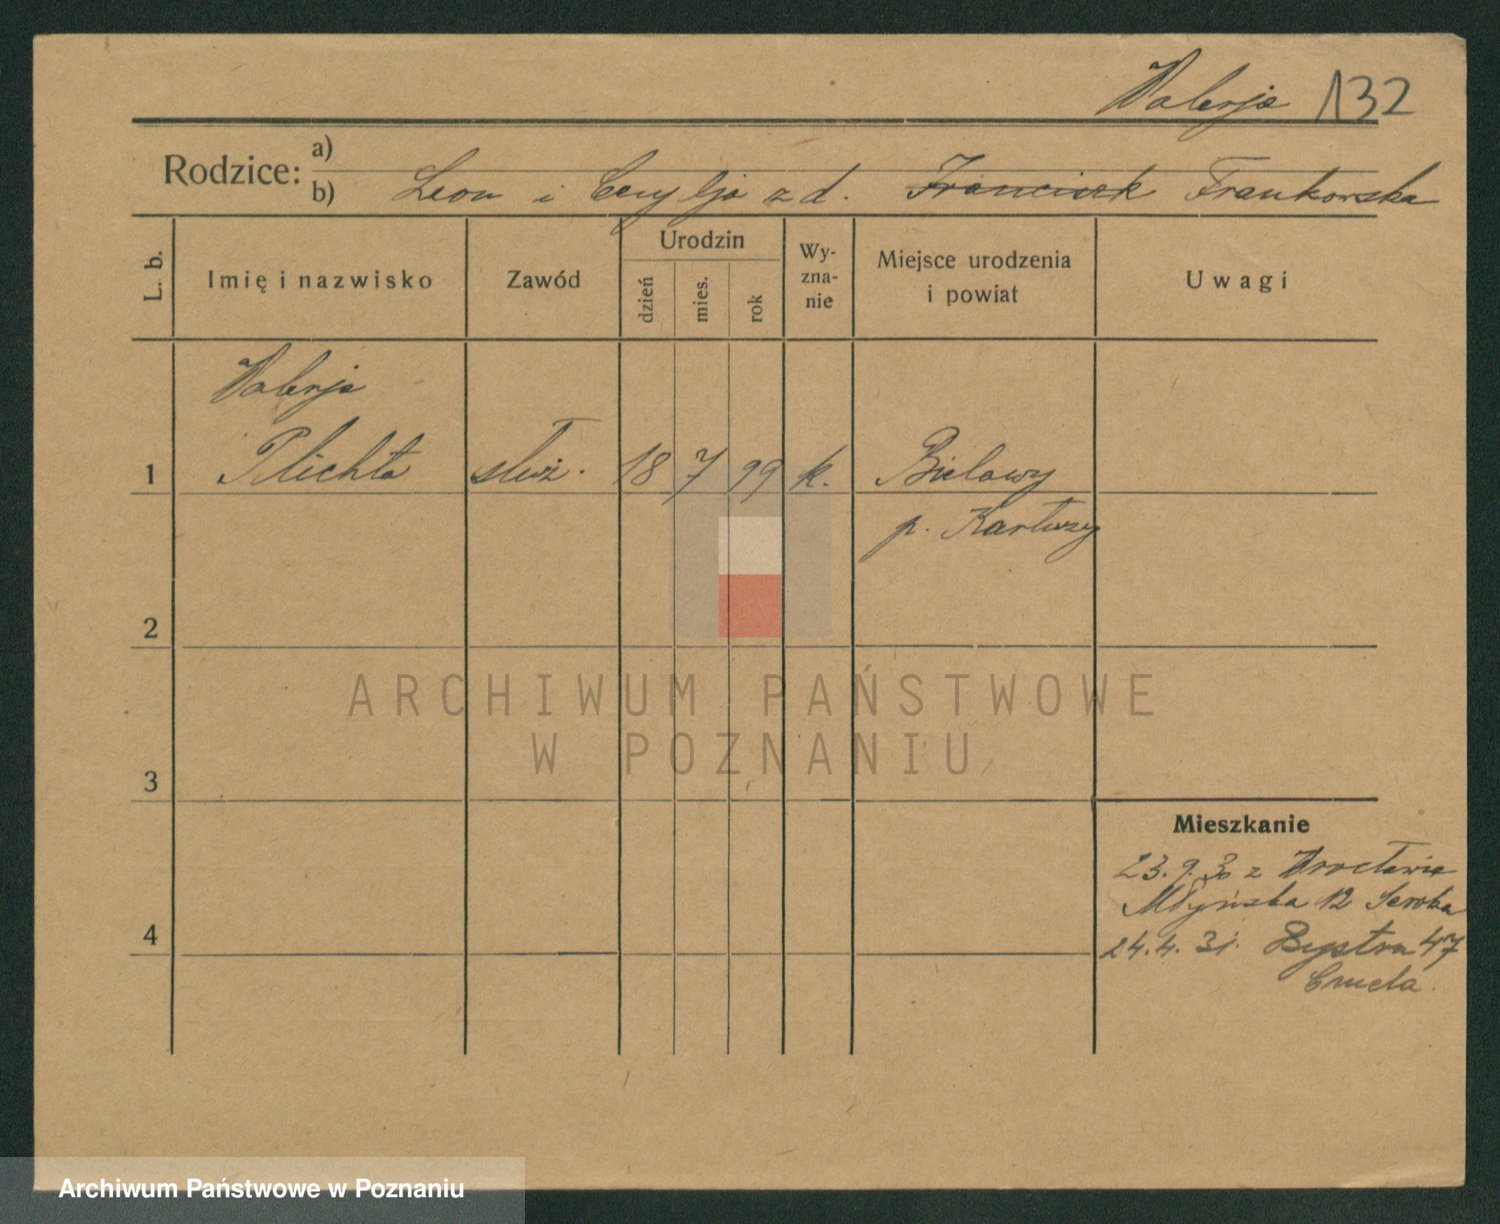 Walerja 132
Rodzice: a)
b) Leon i Cecylja z d. Franciszk Frankowska
L. b.
Imię i nazwisko
Zawód
Urodzin
dzień
mies.
rok
Wy-
zna-
nie
Miejsce urodzenia
i powiat
Uwagi
Walerja
1 Plichta służ. 18 7 99 k. Bielawy
p. Kartuzy
2
ARCHIWUM PAŃSTWOWE
W POZNANIU
3
Mieszkanie
23. 9. 30 z Wrocławia
Młyńska 12
4
24. 4. 31. Bystra 47
Archiwum Państwowe w Poznaniu